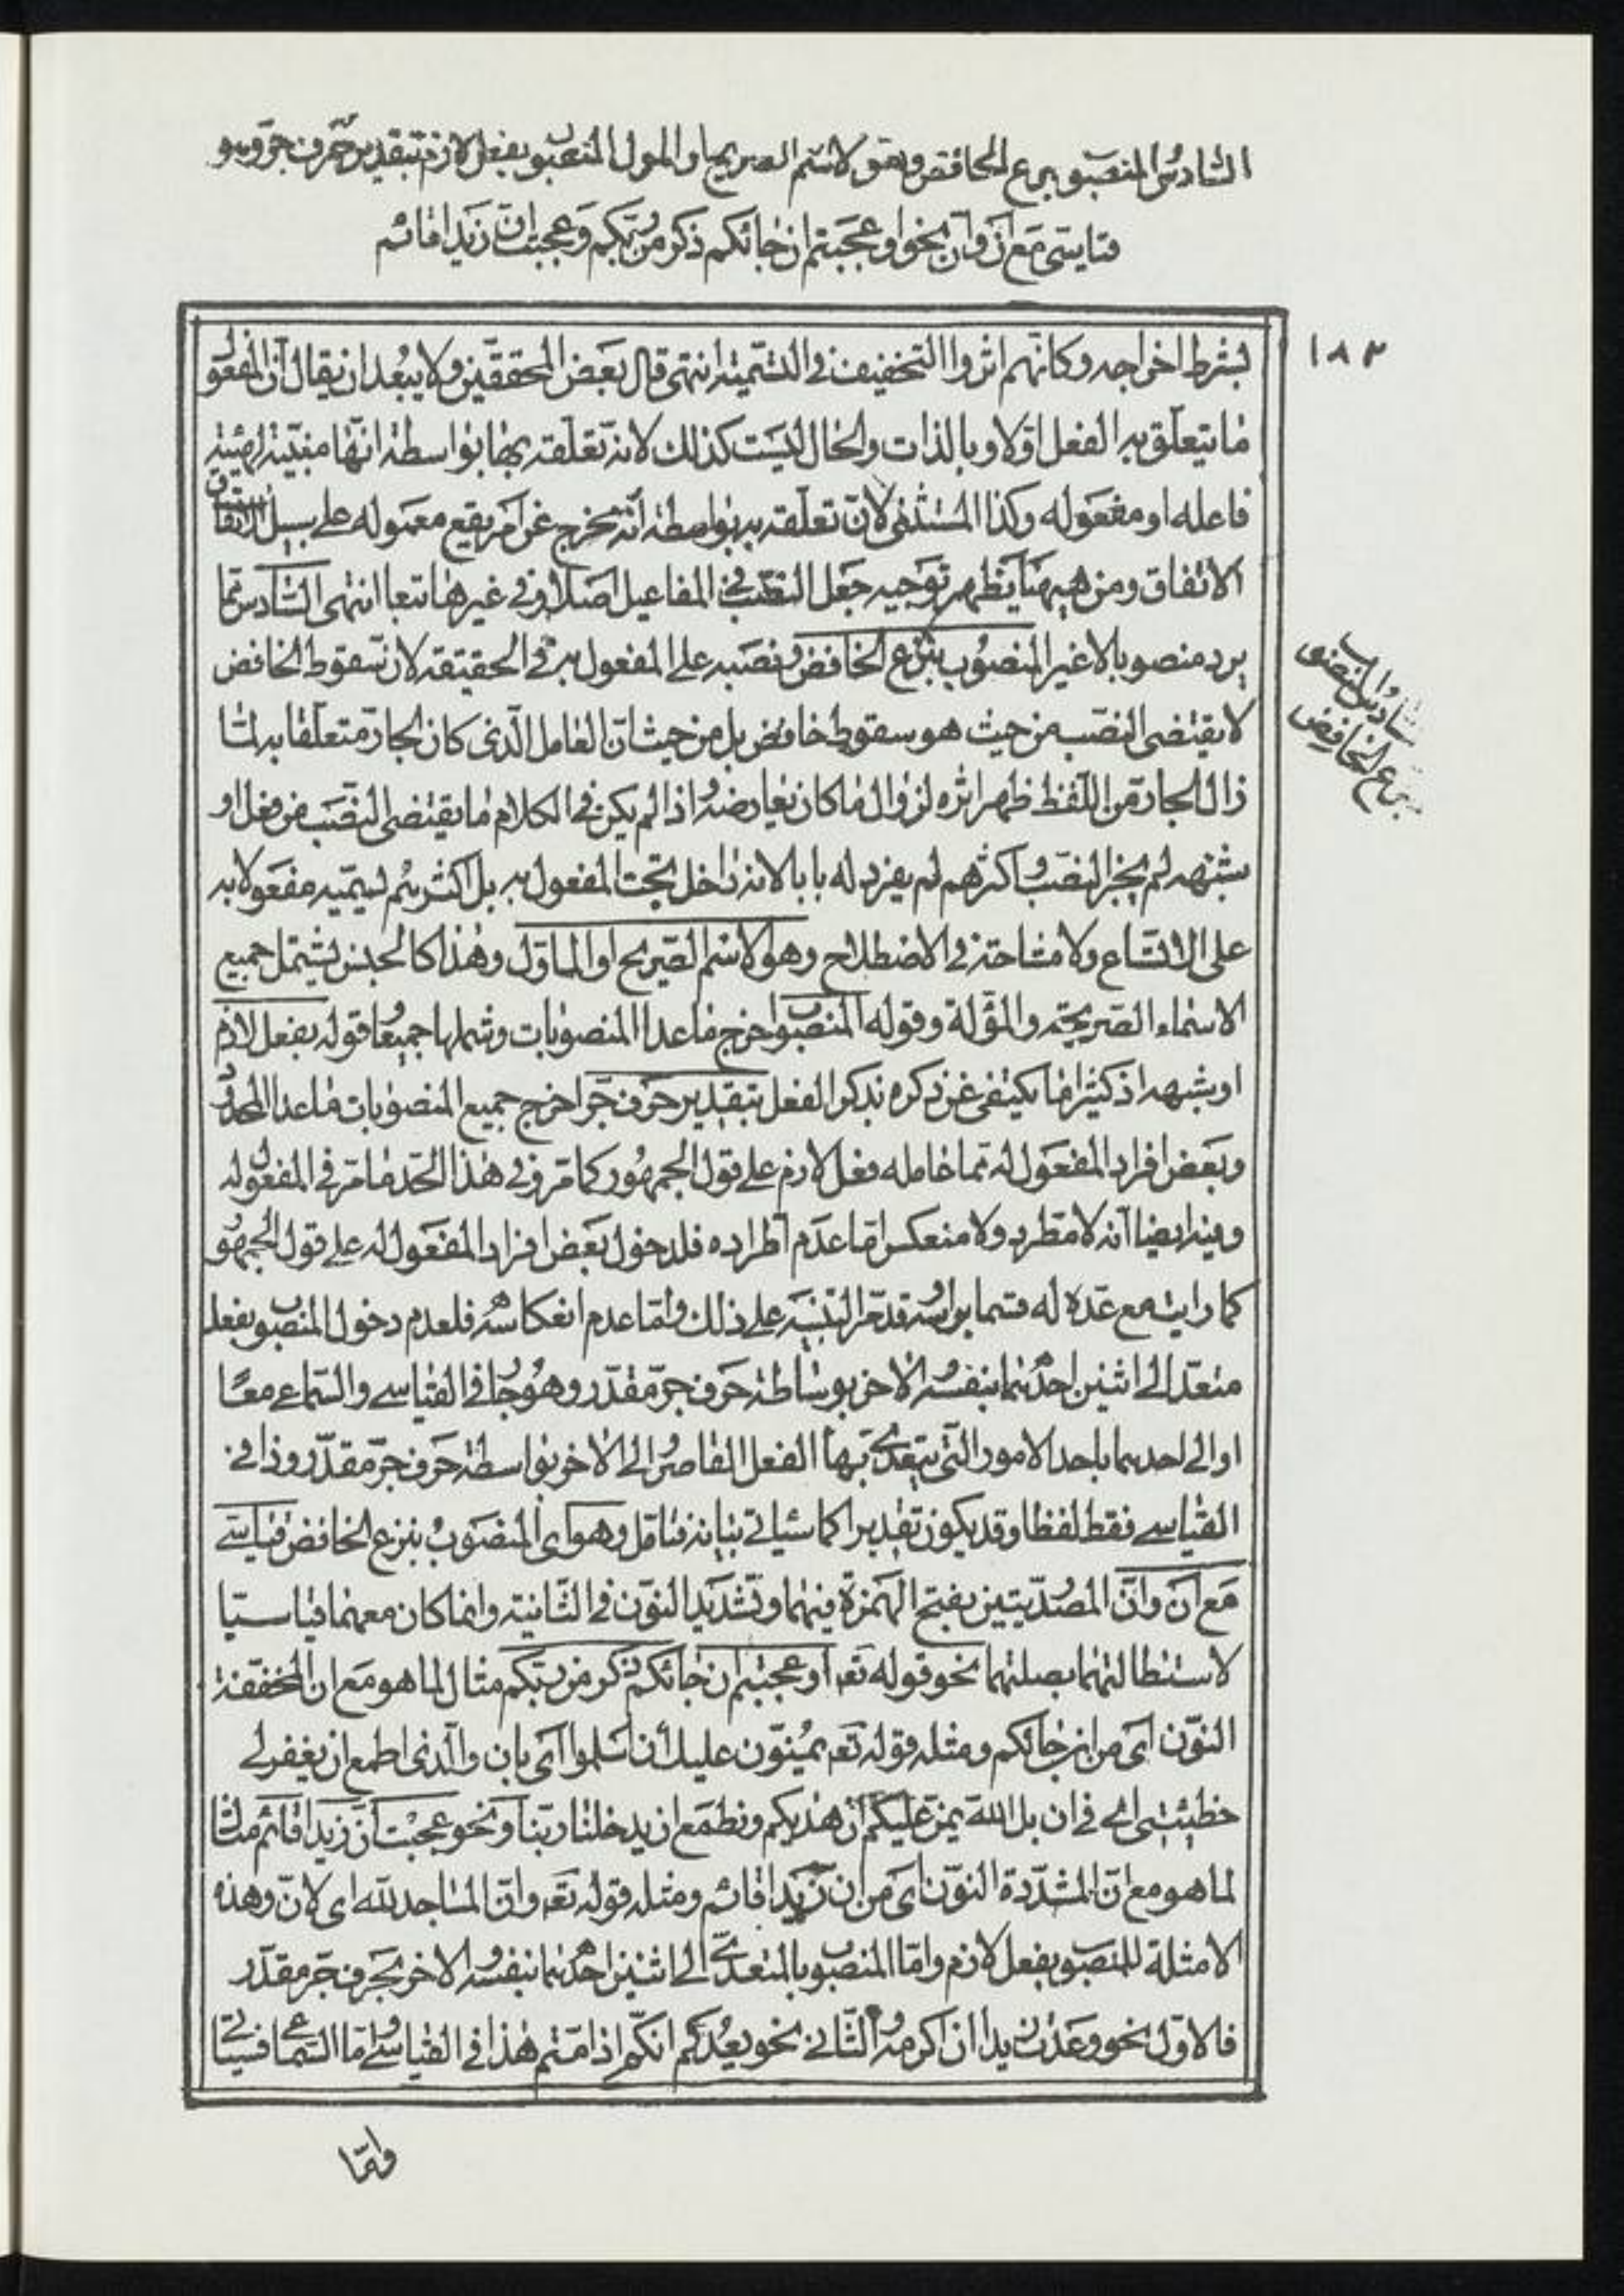 السادس المنصوب بنزع الخافض وهو الاسم الصريح او المؤل المنصوب بفعل لازم بتقدير حرف جر وهو
قياسى مع ان وان نحو اوعجبتم ان جائكم ذكر من ربكم وعجبت ان زيدا قائم
١٨٣
بشرط اخراجه وكانهم اثروا التخفيف فى التسمية انتهى قال بعض المحققين ولا يبعد ان يقال ان المفعول
ما يتعلق به الفعل اولا وبالذات والحال ليست كذلك لانه تعلقه بها بواسطة انها مبينة لهيئة
فاعله او مفعوله وكذا المستثنى لان تعلقه به بواسطة انه مخرج عن امر يقع معموله على سبيل
الاتفاق ومن هيهنا يظهر توجيه جعل النصب فى المفاعيل اصلا وفى غيرها تبعا انتهى السادس مما
يرد منصوبا لا غير المنصوب بنزع الخافض ونصبه على المفعول به فى الحقيقة لان سقوط الخافض
لا يقتضى النصب من حيث هو سقوط خافض بل من حيث ان العامل الذى كان الجار متعلقا به لما
زال الجار من اللفظ ظهر اثره لزوال ما كان يعارضه واذا لم يكن فى الكلام ما يقتضى النصب من فعل او
شبهه لم يجز النصب واكثرهم لم يفرد له بابا لانه داخل تحت المفعول به بل اكثرهم يسميه مفعولا به
على الاتساع ولا مشاحة فى الاصطلاح وهو الاسم الصريح او الماول وهذا كالجنس يشتمل جميع
الاسماء الصريحة والمؤلة وقوله المنصوب اخرج ماعدا المنصوبات وشملها جميعا قوله بفعل لازم
او شبهه اذ كثيرا ما يكتفى عن ذكره بذكر الفعل بتقدير حرف جر اخرج جميع المنصوبات ماعدا المحدود
وبعض افراد المفعول له مما عامله فعل لازم على قول الجمهور كما مر وفى هذا الحد ما مر فى المفعول له
وفيه ايضا انه لا مطرد ولا منعكس اما عدم اطراده فلدخول بعض افراد المفعول له على قول الجمهور
كما رايت مع عده له قسما براسه وقد مر التنبيه على ذلك واما عدم انعكاسه فلعدم دخول المنصوب بفعل
متعد الى اثنين احدهما بنفسه والاخر بوساطة حرف جر مقدر وهو جار فى القياسى والسماعى معا
او الى احدهما باحد الامور التى يتعدى بها الفعل القاصر والى الاخر بواسطة حرف جر مقدر وذا فى
القياسى فقط لفظا وقد يكون تقديرا كما سياتى بيانه فتامل وهو اى المنصوب بنزع الخافض قياسى
مع ان وان المصدريتين بفتح الهمزة فيهما وتشديد النون فى الثانية وانما كان معهما قياسيا
لاستطالتهما بصلتهما نحو قوله تعه اوعجبتم ان جائكم ذكر من ربكم مثال لما هو مع ان المخففة
النون اى من ان جائكم ومثله قوله تعه يمنون عليك أن اسلموا اى بان والذى اطمع ان يغفر لى
خطيئتى اى فى ان بل الله يمن عليكم ان هديكم ونطمع ان يدخلنا ربنا ونحو عجبت ان زيدا قائم مثال
لما هو مع ان المشددة النون اى من ان زيدا قائم ومثله قوله تعه وان المساجد لله اى لان وهذه
الامثلة للمنصوب بفعل لازم واما المنصوب بالمتعدى الى اثنين احدهما بنفسه والاخر بحرف جر مقدر
فالاول نحو وعدت زيدا ان اكرمه والثانى نحو يعدكم انكم اذا متم هذا فى القياسى واما السماعى فسياتى
سادس المنصوب
بنزع الخافض
واما